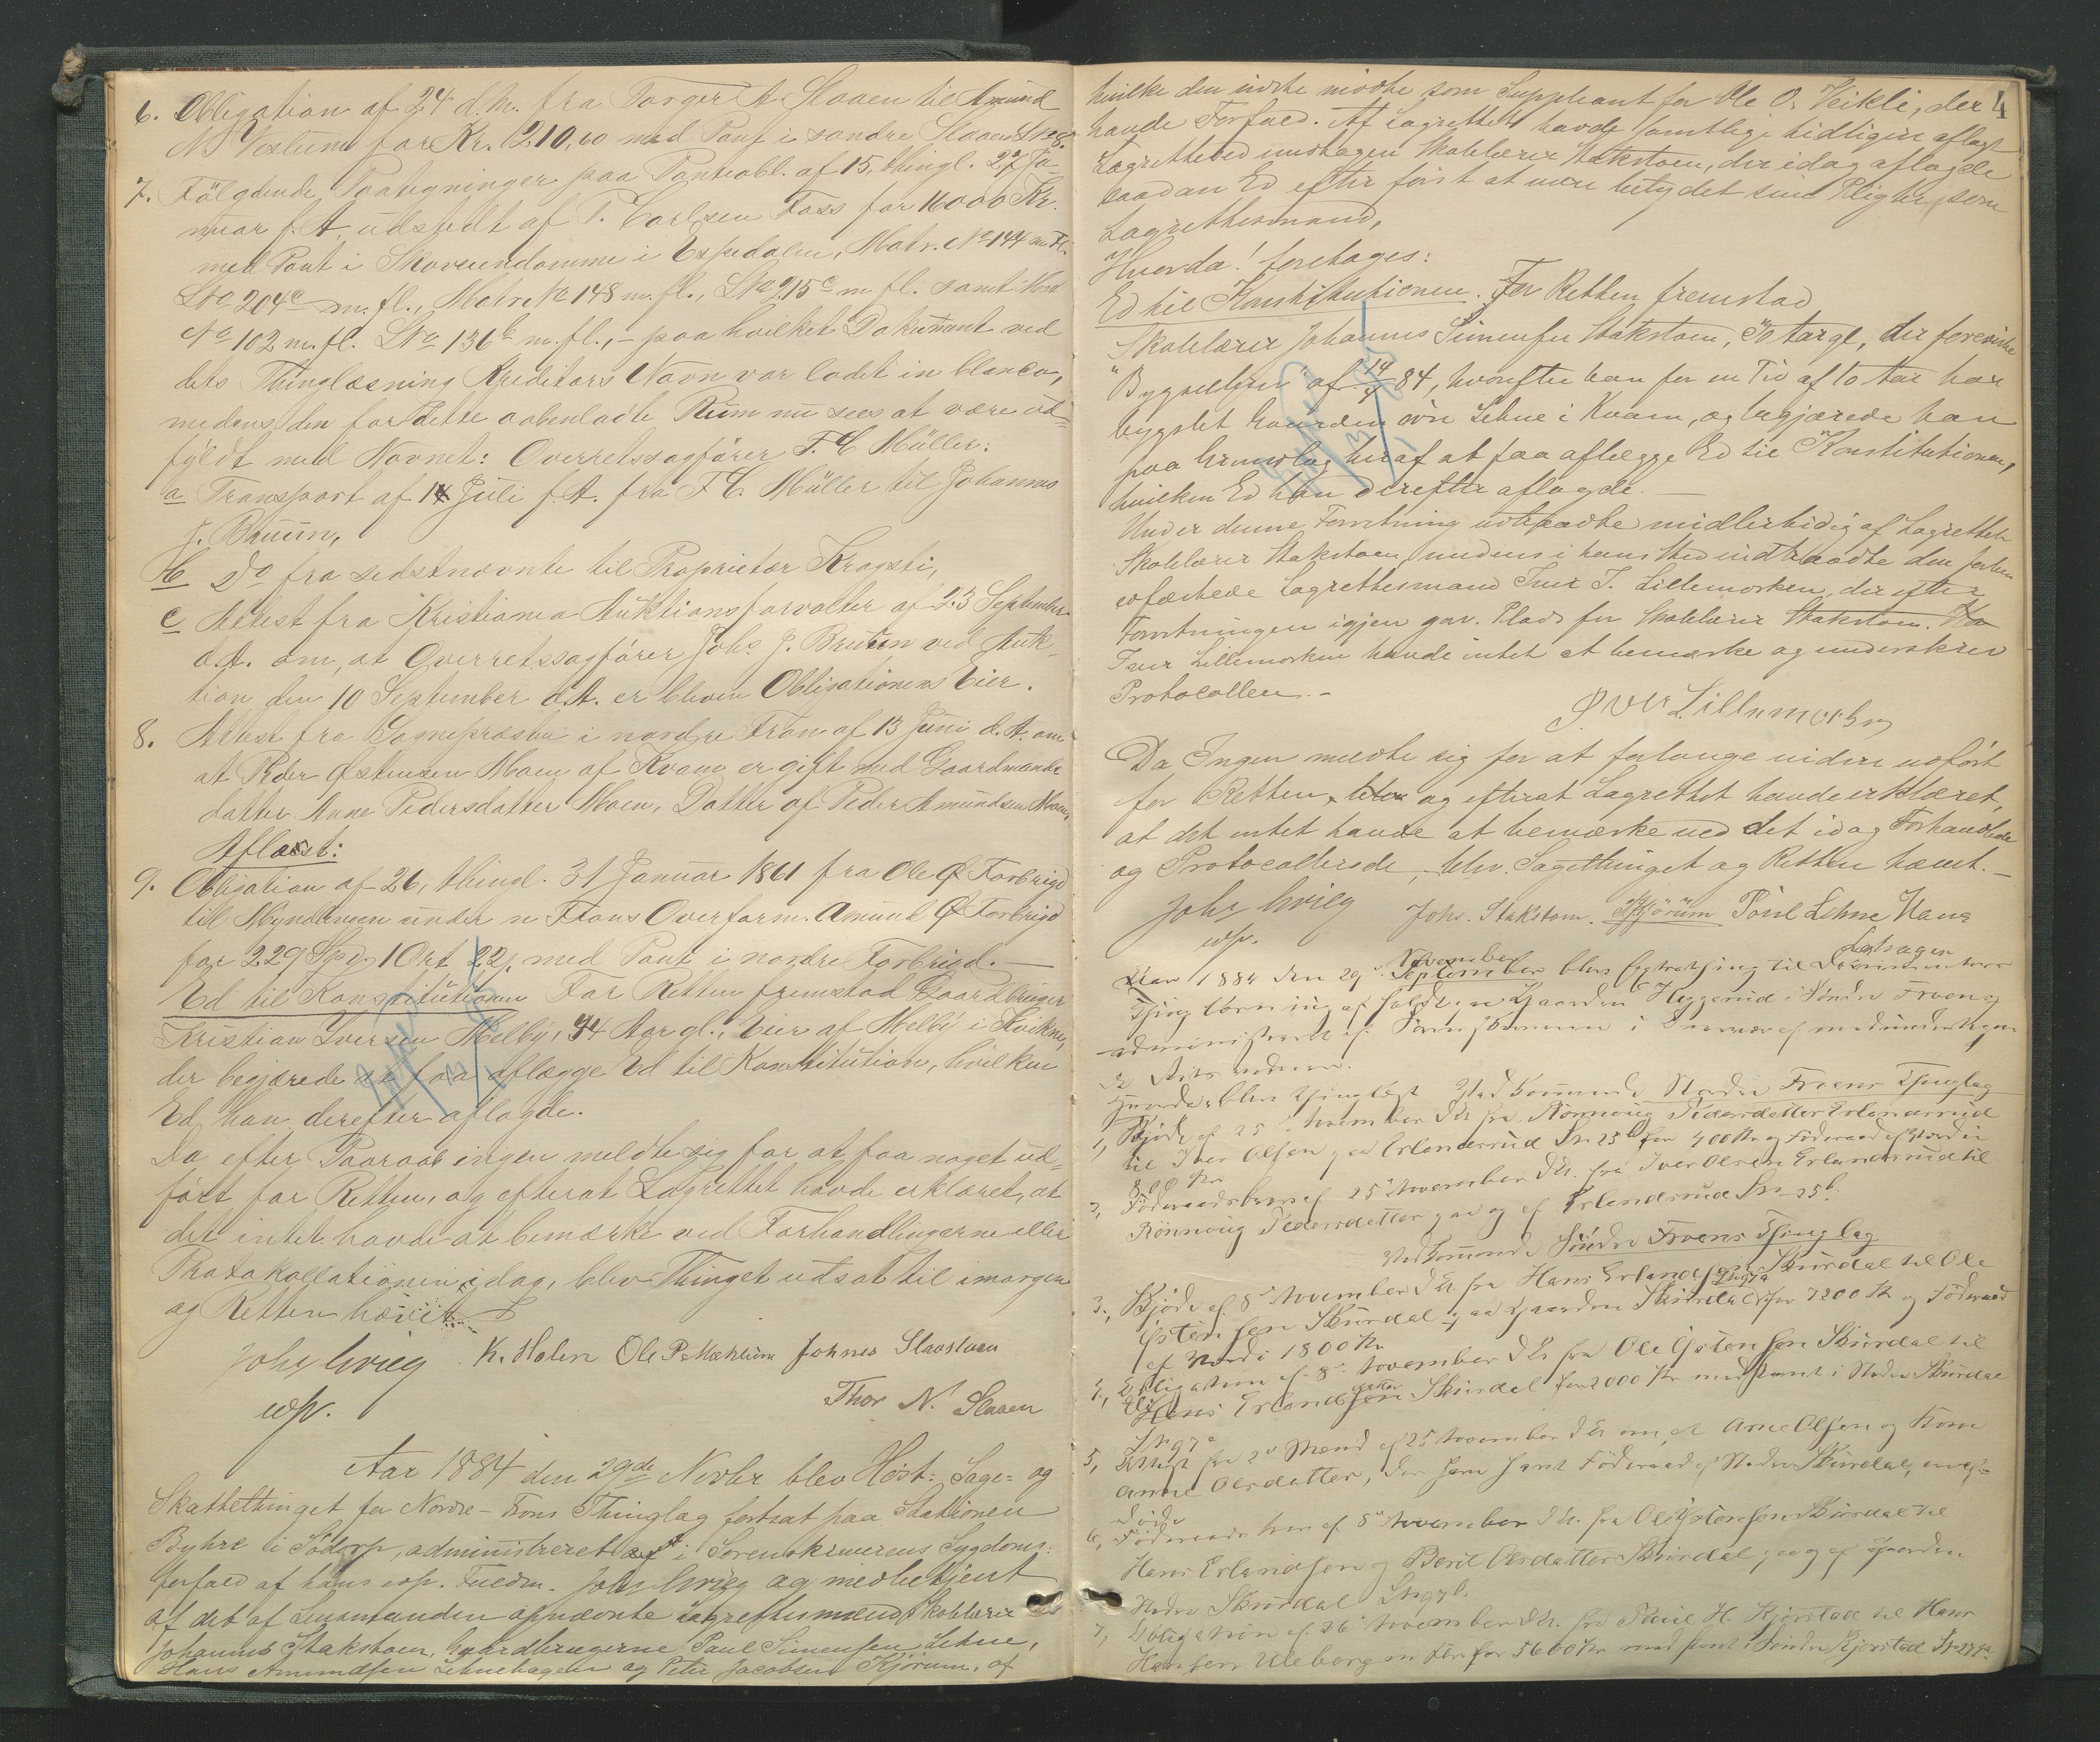 6. Obligation af 24 d.M. fra Torger A Slaaen til Amund
N Veslum for Kr. 210,60 med Pant i søndre Slaaen L No 8.
7. Følgende Paategninger paa Panteobl. af 15, thingl. 27 Ja-
nuar f. A. udstedt af P. Carlsen Foss for 16000 Kr.
med Pant i Skoveiendomme i Espedalen, Matr. No 144 m fl.
L No 204c m. fl., Matr No 148 m. fl., L No 215c m fl. samt Matr
No 102 m. fl. L No 136b m. fl., - paa hvilket Dokument ved
dets Thinglæsning Kreditors Navn var ladet in blanco,
medens den for dette aabenladte Rum nu sees at være ud-
fyldt med Navnet: Overretssagfører F. C Müller:
a Transport af 14 Juli f. A. fra F C Müller til Johannes
J. Bruun,
b Do fra sidstnævnte til Proprietær Kragsti,
c Attest fra Kristiania Auktionsforvalter af 23 September
d.A. om, at Overretssagfører Johs J. Bruun ved Auk-
tion den 10 September d.A. er bleven Obligationens Eier.
8. Attest fra Sognepræsten i nordre Fron af 13 Juni d. A. om
at Peder Østensen Moen af Kvam er gift med Gaardmands
datter Anne Pedersdatter Moen, Datter af Peder Amundsen Moen,
Aflæst:
9. Obligation af 26, thingl. 31 Januar 1861 fra Ole Ø Forbrigd
til Myndlingen under n Frons Overform. Amund Ø Forbrigd
for 229 Spd. 1 Ort 22 s. med Pant i nordre Forbrigd. —
Ed til Konstitutionen Før Retten fremstod Gaardbruger
Kristian Iversen Melby, 44 Aar gl., Eier af Melby i Skikne,
der begjærede at faa aflægge Ed til Konstitution, hvilken
Ed han derefter aflagde.
Da efter Paaraab ingen meldte sig for at faa noget ud-
ført for Retten, og efterat Lagrettet havde erklæret, at
det intet havde at bemærke ved Forhandlingerne eller
Protokollationen idag, blev Thinget udsat til imorgen
og Retten hævet.
Johs Grieg K. Holen Ole P. Mæhlum Johnes Slaastuen
wp. Thor N. Slaaen
Aar 1884 den 29de Novbr blev Høst- Sage- og
Skattethinget for Nordre-Frons Thinglag fortsat paa Stationen
Byhre i Sødorp, administreret i Sorenskriverens Sygdoms-
forfald af hans edsv. Fuldm. Johs Grieg og medbetjent
af det af Lensmanden opnævnte Lagrettesmænd Skolelærer
Johannes Stakstoen, Gaardbrugerne Paul Simensen Lehne,
Hans Amundsen Lehnehagen og Peter Jacobsen Kjørum, af
4
hvilke den sidste mødte som Suppleant for Ole O. Veikle, der
havde Forfald. Af Lagrettet havde samtlige tidligere aflagt
Lagretteed undtagen Skolelærer Stakstoen, der idag aflagde
saadan Ed efter først at være betydet sine Pligter som
Lagrettesmand,
Hvorda! foretages:
Ed til Konstitutionen. For Retten fremstod
Skolelærer Johannes Simensen Stakstoen, 30 Aar gl, der foreviste
"Bygselbrev" af 14/7 84, hvorefter han for en Tid af 10 Aar har
bygslet Gaarden Lehne i Kvam, og begjærede han
paa Grundlag heraf at faa aflægge Ed til "Konstitutionen",
hvilken Ed han derefter aflagde. —
Under denne Forretning udtraadte midlertidig af Lagrettet
Skolelærer Stakstoen, medens i hans Sted indtraadte den forhen
edfæstede Lagrettesmand Iver I. Lillemorken, der efter
Forretningen igjen gav Plads for Skolelærer Stakstoen.
Iver Lillemorken havde intet at bemærke og underskrev
Protocollen. -
Iver Lillemorken
Da Ingen meldte sig for at forlange videre udført
for Retten, blev og efterat Lagrettet havde erklæret,
at det intet havde at bemærke ved det idag Forhandlede
og Protocollerede, blev Sagethinget og Retten hævet. —
Johs Grieg Johs. Stakstoen. PJKjørum Poul Lehne Hans
wp. Lehnhagen
Aar 1884 den 29de September November blev Extrathing til Documenters
Thinglæsning afholdt paa Gaarden Heggerud i Søndre Froen og
administreret af Sorenskriveren i Nærvær af medundertegnede
2de Vidner.
Hvorda blev thinglæst Vedkommende Nordre Froens Thinglag
1, Skjøde af 25 November d Ar fra Rønnoug Pedersdatter Erlandsrud
til Iver Olsen paa Erlandsrud L n 25b for 400 Kr og Føderaad af Værdie
800 Kr
2, Føderaadsbrev af 25 November d Ar. fra Iver Olsen Erlandsrud til
Rønnoug Pedersdatter paa og af Erlandsrud L n 25b.
Vedkommende Søndre Froens Thinglag
3, Skjøde af 8 November d Ar fra Hans Erlandsen Skurdal til Ole
Østensen Skurdal paa Gaarden Skurdal L n 97a for 7200 Kr og Føderaad
af Værdi 1800 Kr
4, Obligation af 8 November d Ar fra Ole Østensen Skurdal til
Hans Erlandsen Skurdal for 2000 Kr med Pant i Nedre Skurdal
L n 97a
5, Attest fra 2de Mænd af 25 November d Ar om, at Arne Olsen og Kone
Anne Olsdatter, der som havt Føderaad af Nedre Skurdal, ere af-
døde
6, Føderaadsbrev af 8 November d Ar. fra Ole Østensen Skurdal til
Hans Erlandsen og Berit Olsdatter Skurdal paa og af Gaarden
Nedre Skurdal L n 97b.
7, Obligation af 26 November d Ar. fra Paul H. Kjorstad til Hans
Hansen Ulleberg for 5600 Kr med Pant i Søndre Kjorstad L n 279a